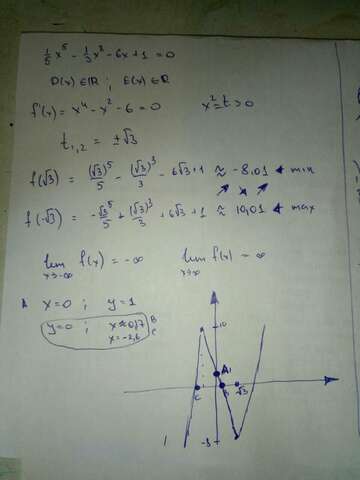 1/5 x⁵ - 1/3 x³ - 6x + 1 = 0
D(x) ∈ R ; E(x) ∈ R
f'(x) = x⁴ - x² - 6 = 0    x² = t > 0
t₁,₂ = ±√3
f(√3) = (√3)⁵/5 - (√3)³/3 - 6√3 + 1 ≈ -8,01 min
f(-√3) = -√3⁵/5 + (√3)³/3 + 6√3 + 1 ≈ 10,01 max
lim x→-∞ f(x) = -∞    lim x→∞ f(x) = ∞
A x=0 ; y=1
y=0 ; x≈0,17 B
x=-2,6 C
10
A 1
C B √3
-8